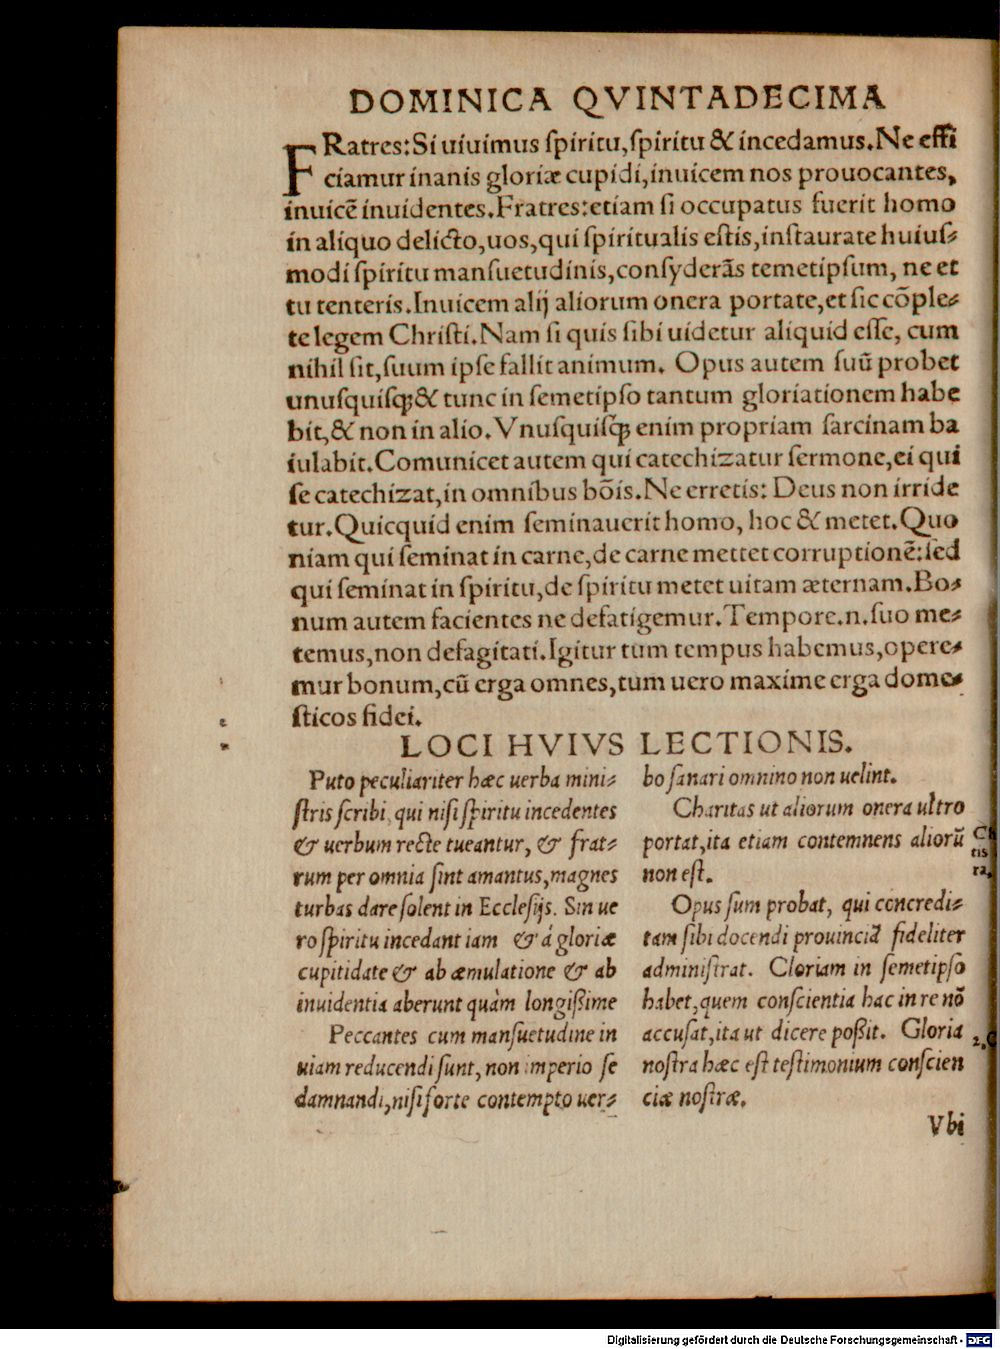 DOMINICA QVINTADECIMA
FRatres: Si uiuimus ſpiritu, ſpiritu & incedamus. Ne effi
ciamur inanis gloriæ cupidi, inuicem nos prouocantes,
inuicē inuidentes. Fratres: etiam ſi occupatus fuerit homo
in aliquo delicto, uos, qui ſpiritualis eſtis, inſtaurate huiuſ⸗
modi ſpiritu manſuetudinis, conſyderãs temetipſum, ne et
tu tenteris. Inuicem alij aliorum onera portate, et ſic cõple⸗
te legem Chriſti. Nam ſi quis ſibi uidetur aliquid eſſe, cum
nihil ſit, ſuum ipſe fallit animum. Opus autem ſuũ probet
unuſquiſq; & tunc in ſemetipſo tantum gloriationem habe
bit, & non in alio. Vnuſquiſq; enim propriam ſarcinam ba
iulabit. Comunicet autem qui catechizatur ſermone, ei qui
ſe catechizat, in omnibus bõis. Ne erretis: Deus non irride
tur. Quicquid enim ſeminauerit homo, hoc & metet. Quo
niam qui ſeminat in carne, de carne mettet corruptionē: ſed
qui ſeminat in ſpiritu, de ſpiritu metet uitam æternam. Bo⸗
num autem facientes ne defatigemur. Tempore .n. ſuo me⸗
temus, non defagitati. Igitur tum tempus habemus, opere⸗
mur bonum, cũ erga omnes, tum uero maxime erga dome⸗
ſticos fidei.
LOCI HVIVS LECTIONIS.
Puto peculiariter hæc uerba mini⸗
ſtris ſcribi, qui niſi ſpiritu incedentes
& uerbum recte tueantur, & frat⸗
rum per omnia ſint amantus, magnes
turbas dare ſolent in Eccleſijs. Sin ue
ro ſpiritu incedant iam & á gloriæ
cupitidate & ab æmulatione & ab
inuidentia aberunt quàm longißime
Peccantes cum manſuetudine in
uiam reducendi ſunt, non imperio ſe
damnandi, niſi forte contempto uer⸗
bo ſanari omnino non uelint.
Charitas ut aliorum onera ultro
portat, ita etiam contemnens aliorũ
non eſt.
Opus ſum probat, qui concredi⸗
tam ſibi docendi prouinciã fideliter
adminiſtrat. Cloriam in ſemetipſo
habet, quem conſcientia hac in re nõ
accuſat, ita ut dicere poßit. Gloria
noſtra hæc eſt teſtimonium conſcien
ciæ noſtræ.
Ch
tis
ra,
2. C
Vbi
Digitalisierung gefördert durch die Deutsche Forschungsgemeinschaft - DFG